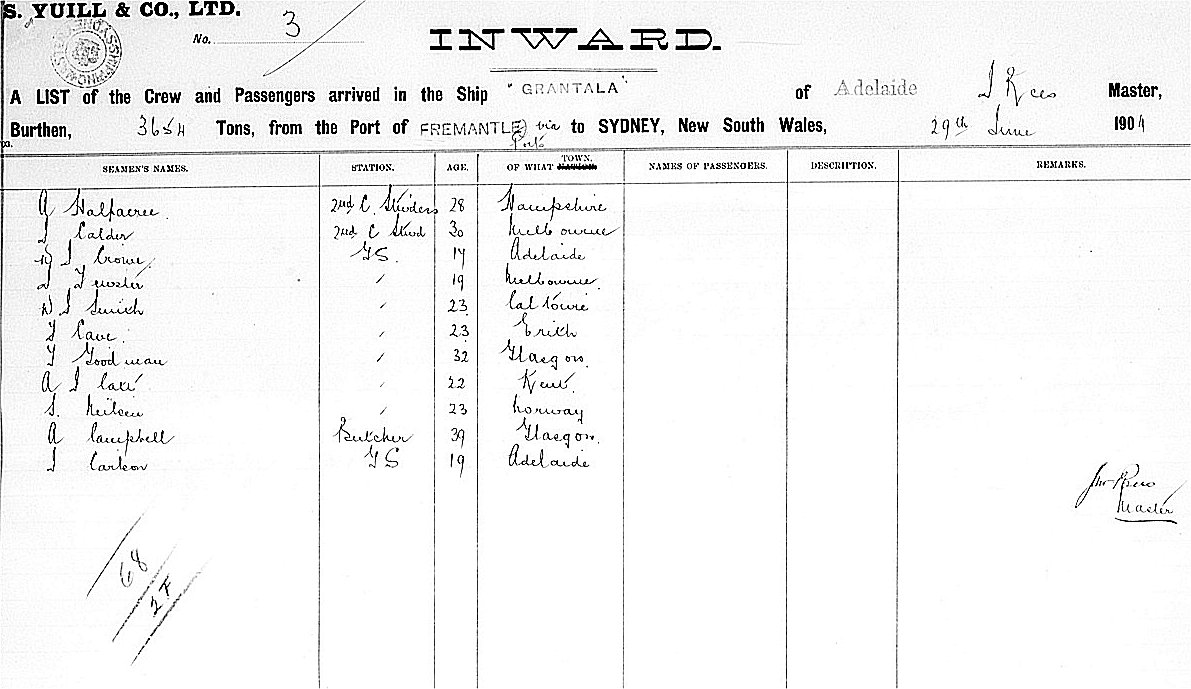 S. YUILL & CO., LTD.
No. 3
INWARD.
A LIST of the Crew and Passengers arrived in the Ship "GRANTALA" of Adelaide J Rees Master,
Burthen, 3654 Tons, from the Port of FREMANTLE via Ports to SYDNEY, New South Wales, 29th June 1904
SEAMEN'S NAMES. STATION. AGE. OF WHAT NATION. TOWN. NAMES OF PASSENGERS. DESCRIPTION. REMARKS.
A Halfacree 28 Hampshire
J Calder 2nd C Stwd 30 Melbourne
J Crowe GS. 17 Adelaide
19 Melbourne
J Smith " 23
Cave " 23 Erith
Goodman " 32 Glasgow
A J " 22 Kent
S. Neilsen " 23 Norway
A Campbell Butcher 39 Glasgow
J Carlson GS 19 Adelaide
Jno Rees
Master
68
2 F